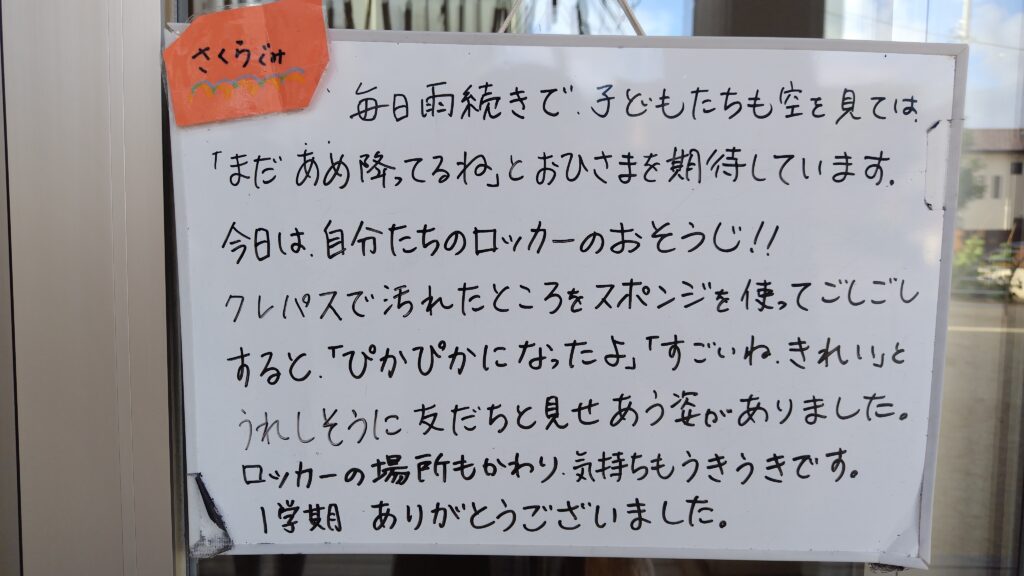 さくらぐみ
毎日雨続きで、子どもたちも空を見ては
「まだ あめ降ってるね」とおひさまを期待しています。
今日は、自分たちのロッカーのおそうじ!!
クレパスで汚れたところをスポンジを使ってごしごし
すると、「ぴかぴかになったよ」「すごいね、きれい」と
うれしそうに友だちと見せあう姿がありました。
ロッカーの場所もかわり、気持ちもうきうきです。
1学期 ありがとうございました。